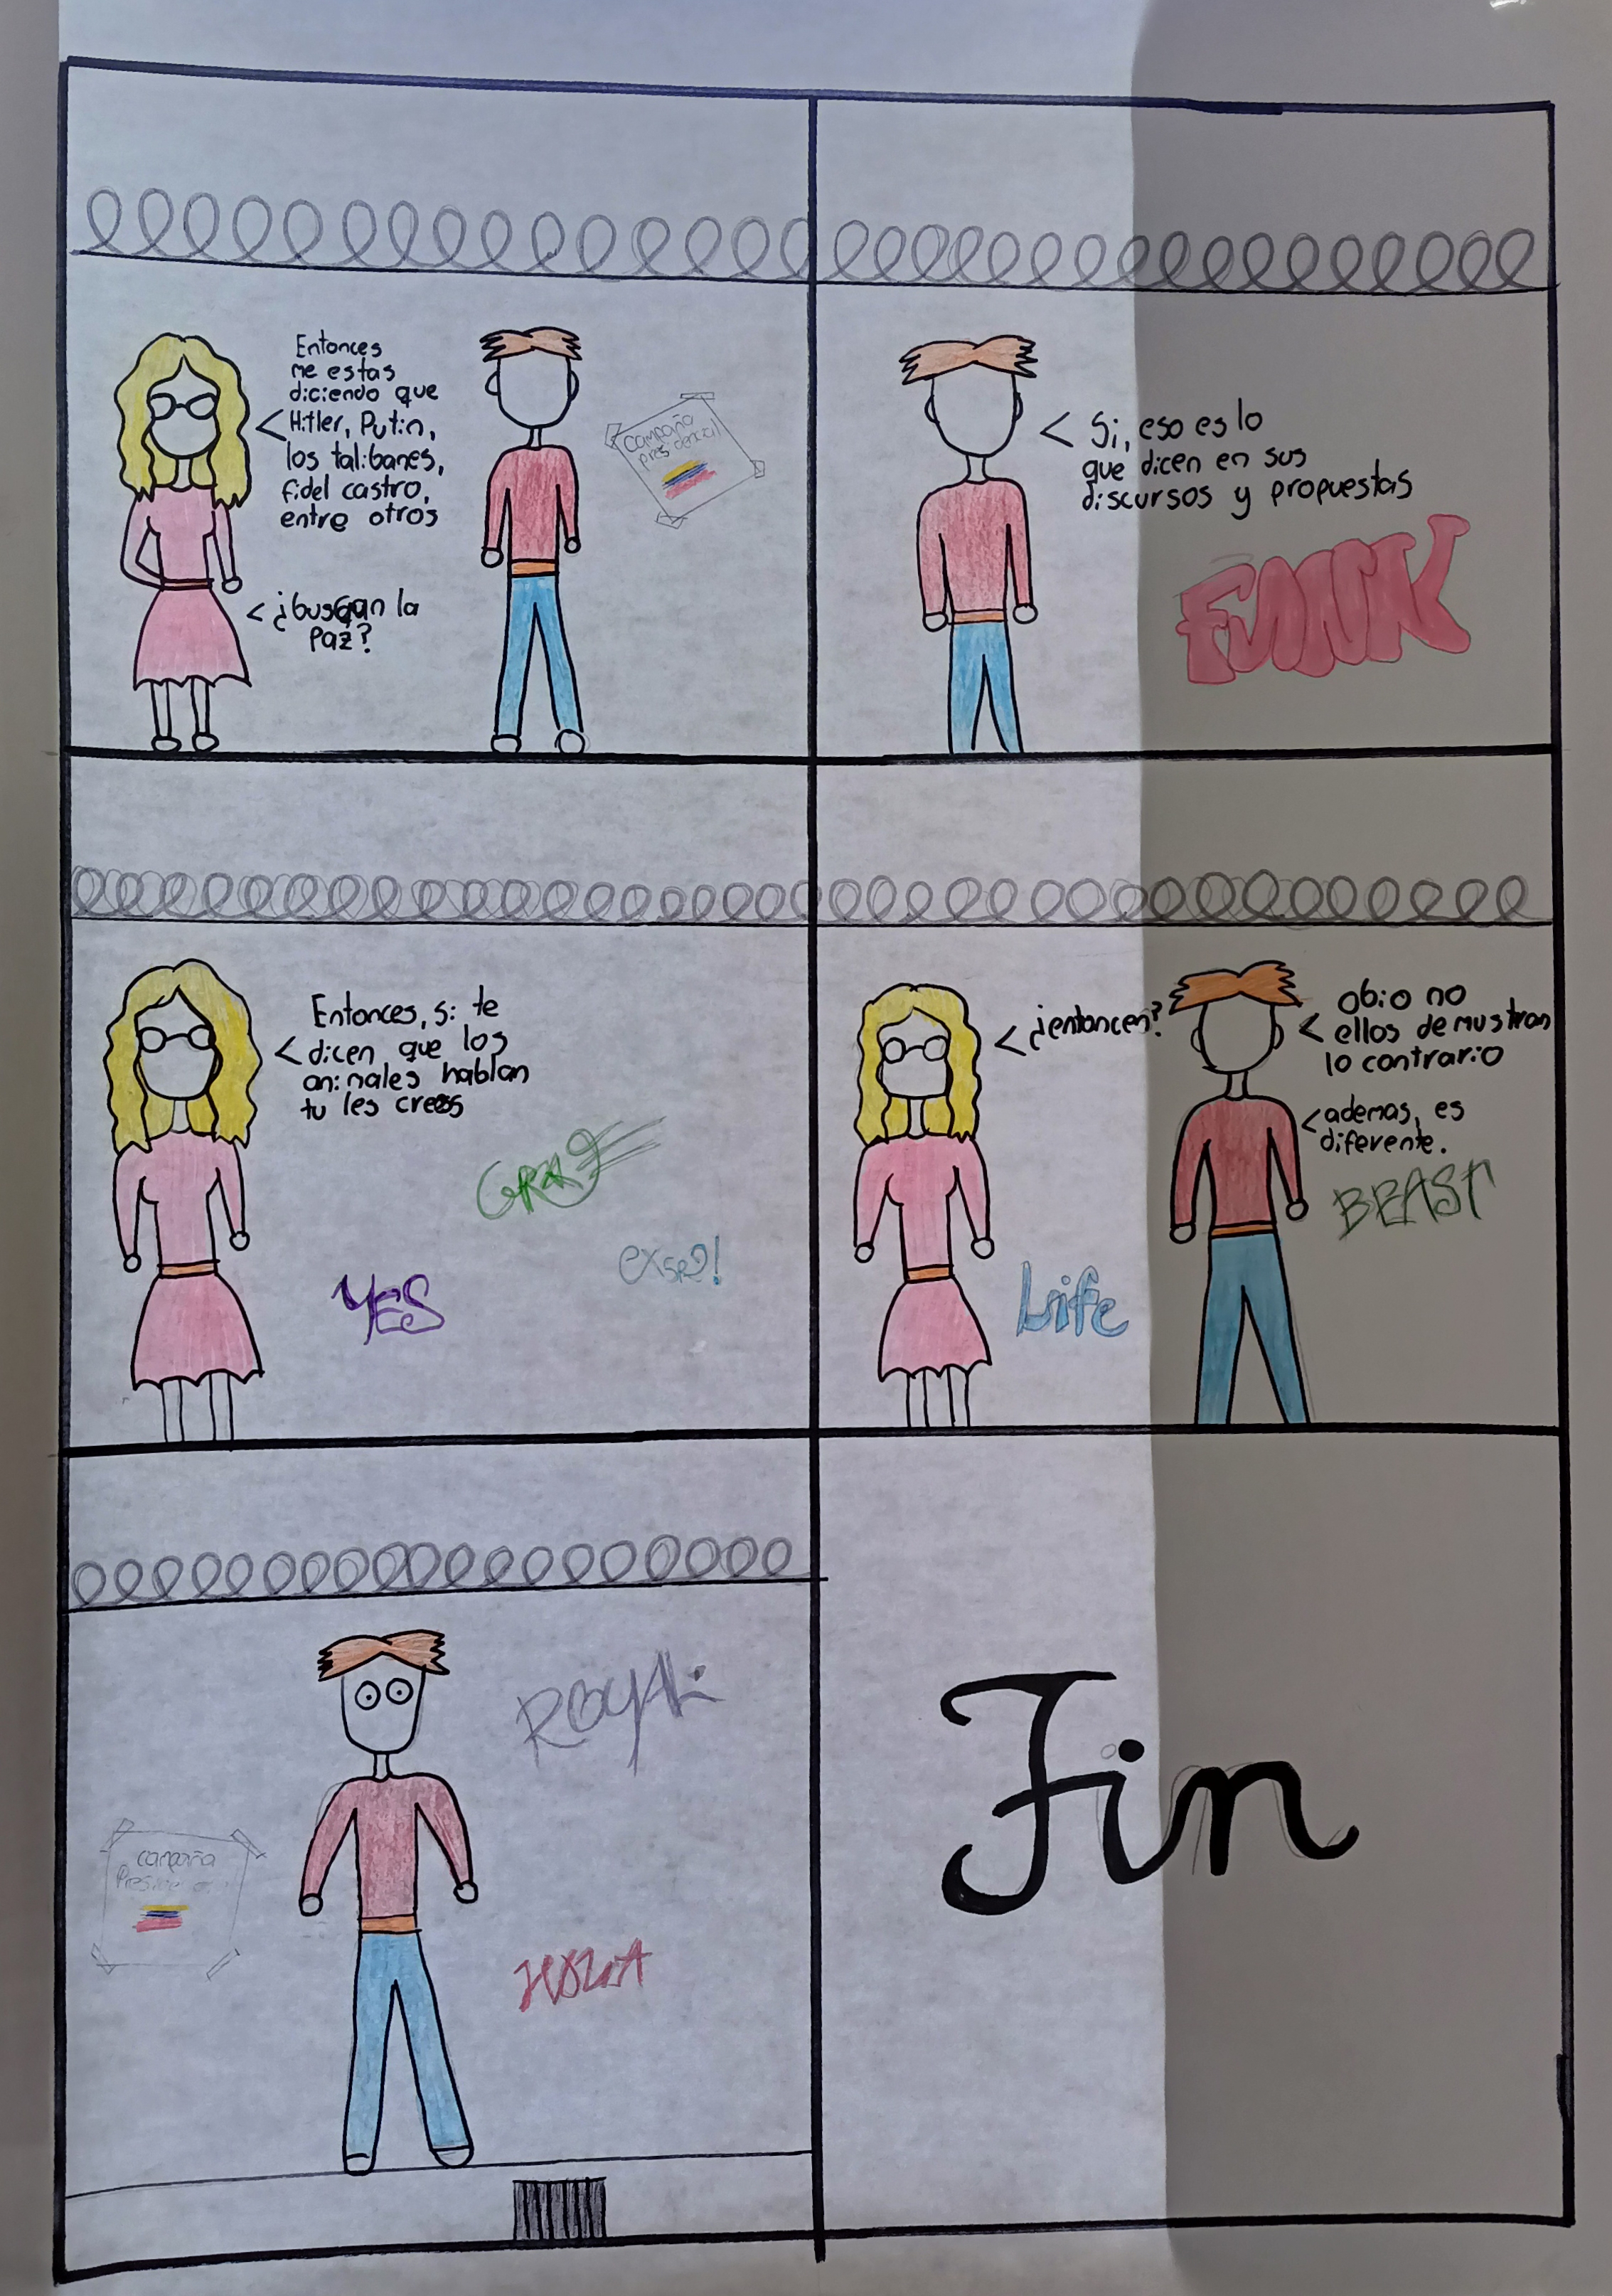 Entonces
me estas
diciendo que
Hitler, Putin,
los talibanes,
fidel castro,
entre otros
¿busquan la
Paz?
Campaña
presidencial
Si, eso es lo
que dicen en sus
discursos y propuestas
FUNK
Entonces, si te
dicen que los
animales hablan
tu les crees
YES
¿entonces?
obio no
ellos demustran
lo contrario
ademas, es
diferente.
BEAST
Life
ROYAL
campaña
HOLA
Fin